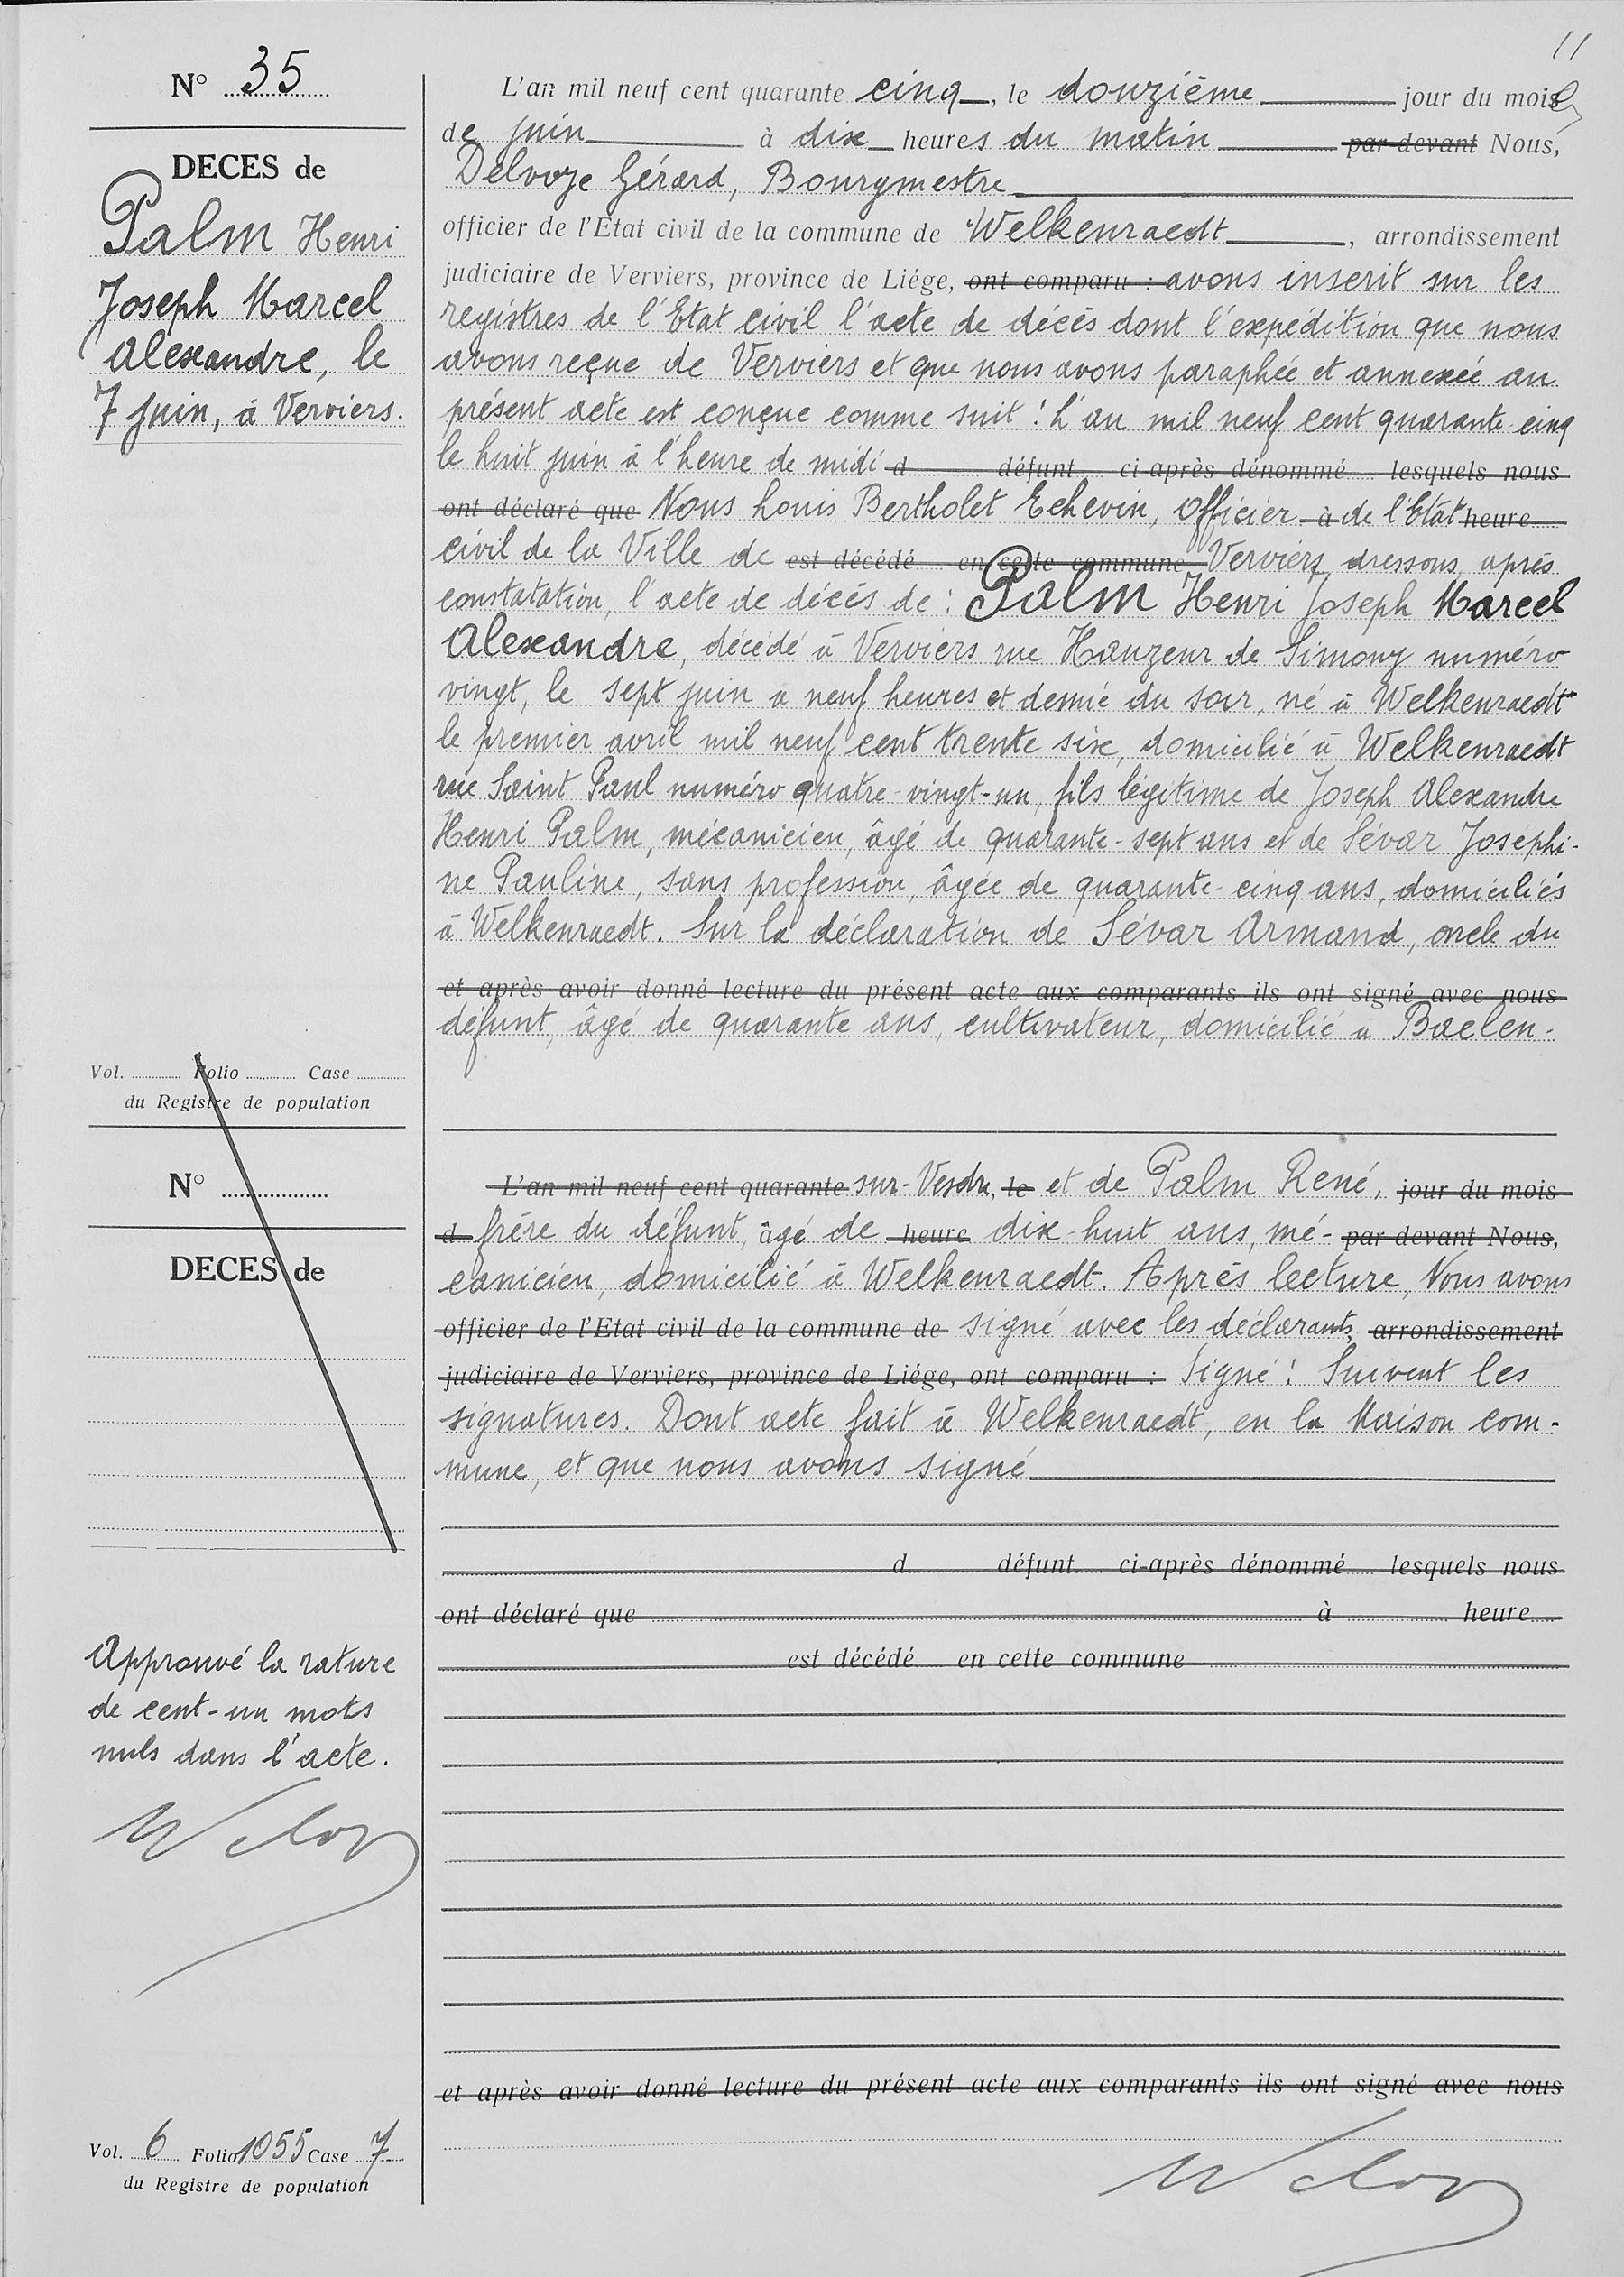 11
N° 35
DECES de
Palm Henri
Joseph Marcel
Alexandre, le
7 juin, à Verviers.
L'an mil neuf cent quarante cinq, le douzième jour du mois
de juin à dix heures du matin par devant Nous,
Delvoye Gérard, Bourgmestre
officier de l'Etat civil de la commune de Welkenraedt, arrondissement
judiciaire de Verviers, province de Liége, ont comparu : avons inscrit sur les
registres de l'Etat civil l'acte de décès dont l'expédition que nous
avons reçue de Verviers et que nous avons paraphée et annexée au
présent acte est conçue comme suit : L'an mil neuf cent quarante-cinq
le huit juin à l'heure de midi d défunt ci-après dénommé lesquels nous
ont déclaré que Nous Louis Bertholet Echevin, Officier à de l'Etat heure
civil de la Ville de est décédé en cette commune Verviers, dressons, après
constatation, l'acte de décès de : Palm Henri Joseph Marcel
Alexandre, décédé à Verviers rue Hauzeur de Simony numéro
vingt, le sept juin à neuf heures et demie du soir, né à Welkenraedt
le premier avril mil neuf cent trente six, domicilié à Welkenraedt
rue Saint Paul numéro quatre-vingt-un, fils légitime de Joseph Alexandre
Henri Palm, mécanicien, âgé de quarante-sept ans et de Sévar Joséphi-
ne Pauline, sans profession, âgée de quarante-cinq ans, domiciliés
à Welkenraedt. Sur la déclaration de Sévar Armand, oncle du
et après avoir donné lecture du présent acte aux comparants ils ont signé avec nous
défunt, âgé de quarante ans, cultivateur, domicilié à Baelen-
Vol. Folio Case
du Registre de population
N°
DECES de
L'an mil neuf cent quarante sur-Vesdre, le et de Palm René, jour du mois
d frère du défunt, âgé de heure dix-huit ans, mé- par devant Nous,
canicien, domicilié à Welkenraedt. Après lecture, Nous avons
officier de l'Etat civil de la commune de signé avec les déclarants, arrondissement
judiciaire de Verviers, province de Liége, ont comparu : Signé : Suivent les
signatures. Dont acte fait à Welkenraedt, en la Maison com-
mune, et que nous avons signé
d défunt ci-après dénommé lesquels nous
ont déclaré que à heure
est décédé en cette commune
Approuvé la rature
de cent-un mots
nuls dans l'acte.
et après avoir donné lecture du présent acte aux comparants ils ont signé avec nous
Vol. 6 Folio 1055 Case 7
du Registre de population